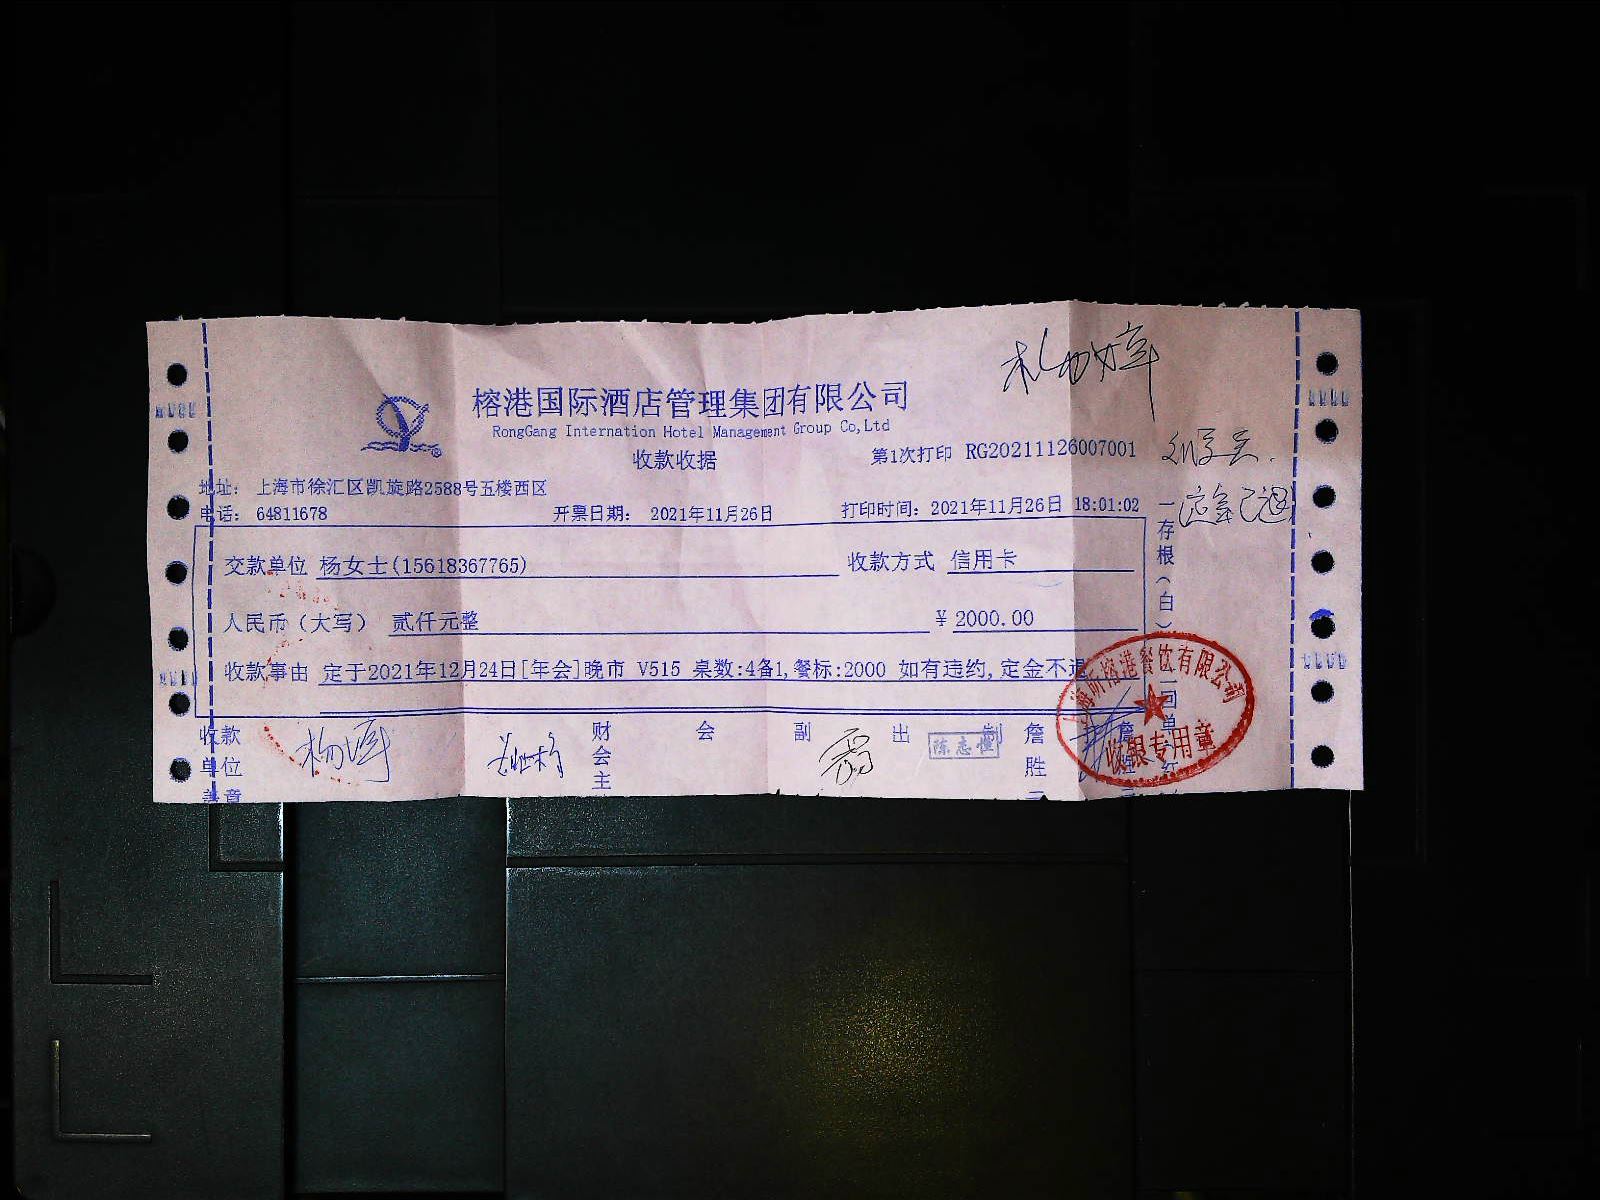 榕港国际酒店管理集团有限公司
RongGang Internation Hotel Management Group Co,Ltd
收款收据
第1次打印 RG20211126007001
地址: 上海市徐汇区凯旋路2588号五楼西区
电话: 64811678
开票日期: 2021年11月26日
打印时间: 2021年11月26日 18:01:02
交款单位 杨女士(15618367765)
收款方式 信用卡
人民币(大写) 贰仟元整
¥ 2000.00
收款事由 定于2021年12月24日[年会]晚市 V515 桌数:4备1,餐标:2000 如有违约,定金不退
一存根(白)
定金已退
港餐饮有限公司
收银专用章
收款
单位
盖章
财会主
会
副
出
制
詹胜二
陈志